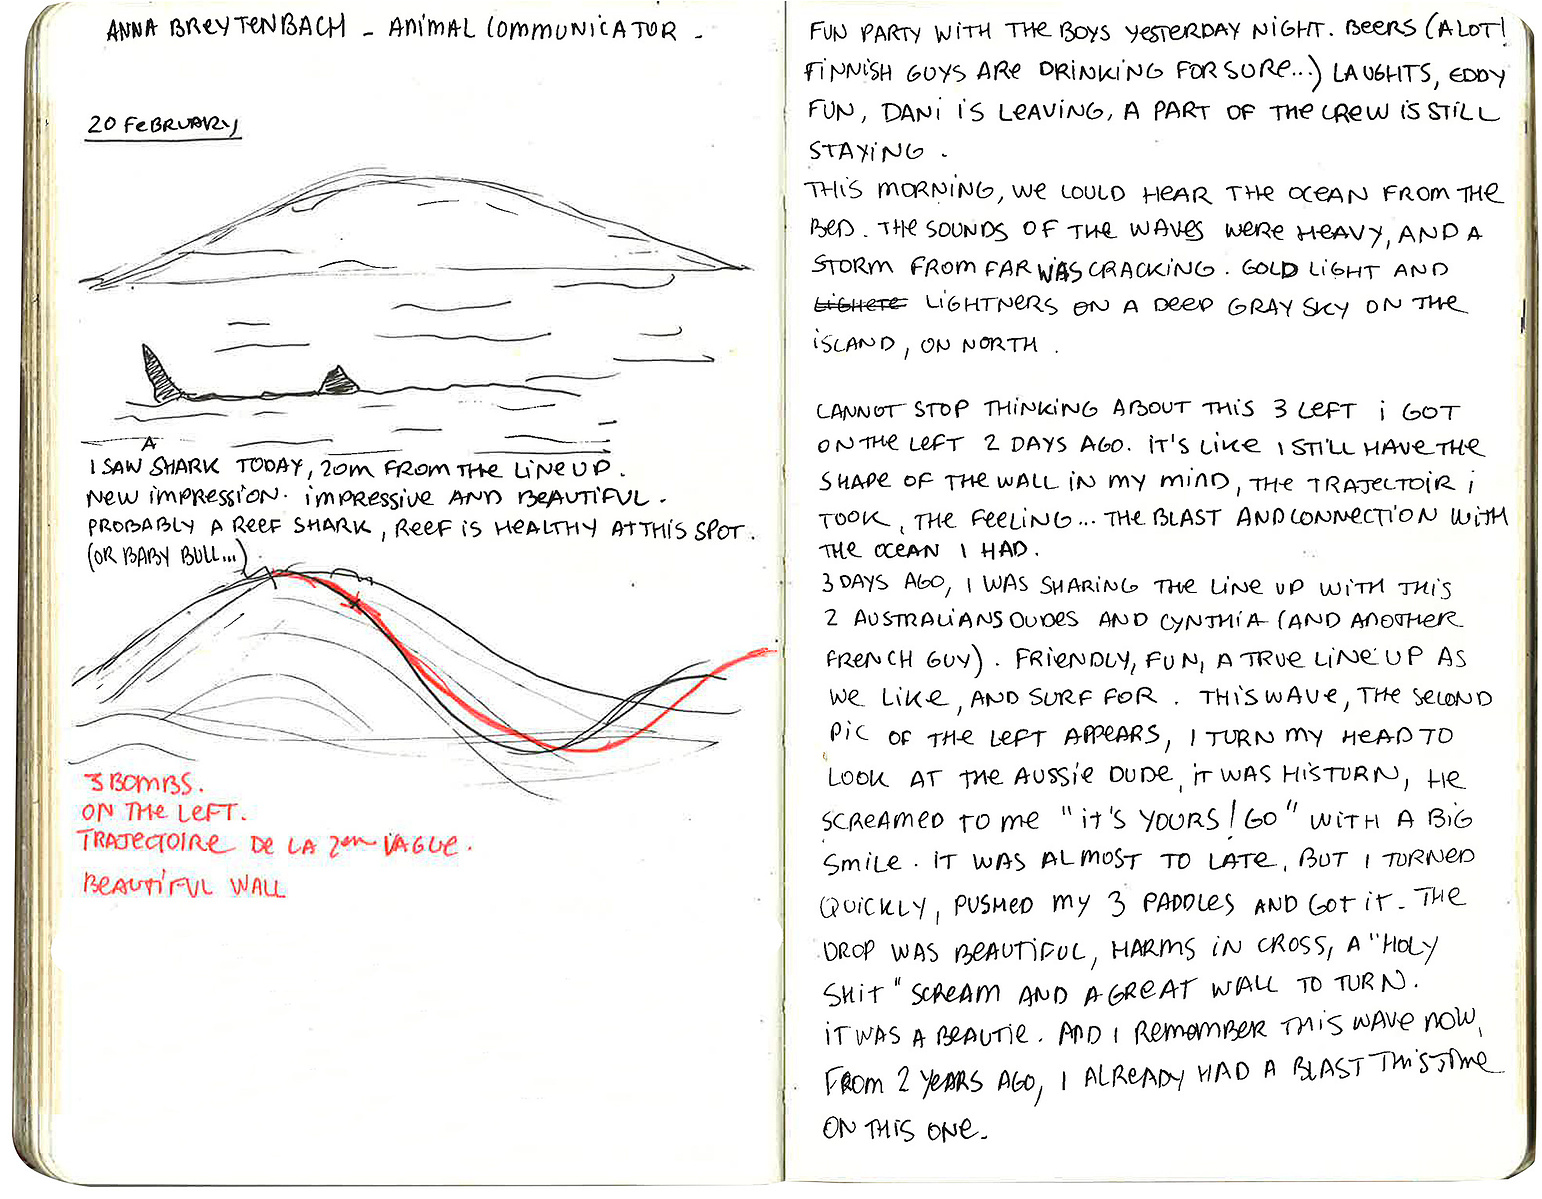 ANNA BREYTENBACH - ANIMAL COMMUNICATOR -
20 FEBRUARY
A
I SAW SHARK TODAY, 20m FROM THE LINE UP.
NEW IMPRESSION. IMPRESSIVE AND BEAUTIFUL.
PROBABLY A REEF SHARK, REEF IS HEALTHY AT THIS SPOT.
(OR BABY BULL...)
3 BOMBS.
ON THE LEFT.
TRAJECTOIRE DE LA 2em VAGUE.
BEAUTIFUL WALL
FUN PARTY WITH THE BOYS YESTERDAY NIGHT. BEERS (A LOT!
FINNISH GUYS ARE DRINKING FOR SURE...) LAUGHTS, EDDY
FUN, DANI IS LEAVING, A PART OF THE CREW IS STILL
STAYING.
THIS MORNING, WE COULD HEAR THE OCEAN FROM THE
BED. THE SOUNDS OF THE WAVES WERE HEAVY, AND A
STORM FROM FAR WAS CRACKING. GOLD LIGHT AND
LIGHTNERS ON A DEEP GRAY SKY ON THE
ISLAND, ON NORTH.
CANNOT STOP THINKING ABOUT THIS 3 LEFT I GOT
ON THE LEFT 2 DAYS AGO. IT'S LIKE I STILL HAVE THE
SHAPE OF THE WALL IN MY MIND, THE TRAJECTOIR I
TOOK, THE FEELING... THE BLAST AND CONNECTION WITH
THE OCEAN I HAD.
3 DAYS AGO, I WAS SHARING THE LINE UP WITH THIS
2 AUSTRALIANS DUDES AND CYNTHIA (AND ANOTHER
FRENCH GUY). FRIENDLY, FUN, A TRUE LINE UP AS
WE LIKE, AND SURF FOR. THIS WAVE, THE SECOND
PIC OF THE LEFT APPEARS, I TURN MY HEAD TO
LOOK AT THE AUSSIE DUDE, IT WAS HIS TURN, HE
SCREAMED TO ME "IT'S YOURS! GO" WITH A BIG
SMILE. IT WAS ALMOST TO LATE, BUT I TURNED
QUICKLY, PUSHED MY 3 PADDLES AND GOT IT. THE
DROP WAS BEAUTIFUL, HARMS IN CROSS, A "HOLY
SHIT" SCREAM AND A GREAT WALL TO TURN.
IT WAS A BEAUTIE. AND I REMEMBER THIS WAVE NOW,
FROM 2 YEARS AGO, I ALREADY HAD A BLAST THIS TIME
ON THIS ONE.